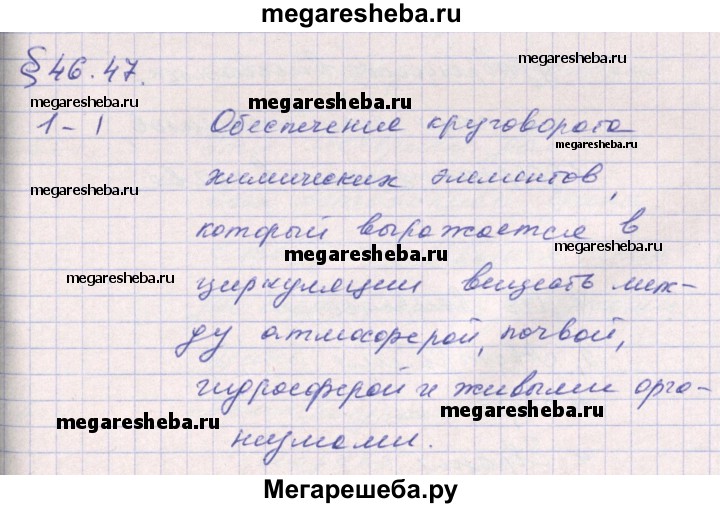 megaresheba.ru
§ 46.47.
megaresheba.ru
megaresheba.ru
megaresheba.ru
1-1 Обеспечение круговорота
megaresheba.ru
химических элементов,
megaresheba.ru
который выражается в
megaresheba.ru
megaresheba.ru
megaresheba.ru
циркуляции веществ меж-
ду атмосферой, почвой,
гидросферой и живыми орга-
megaresheba.ru
megaresheba.ru
низмами.
Мегарешеба.ру